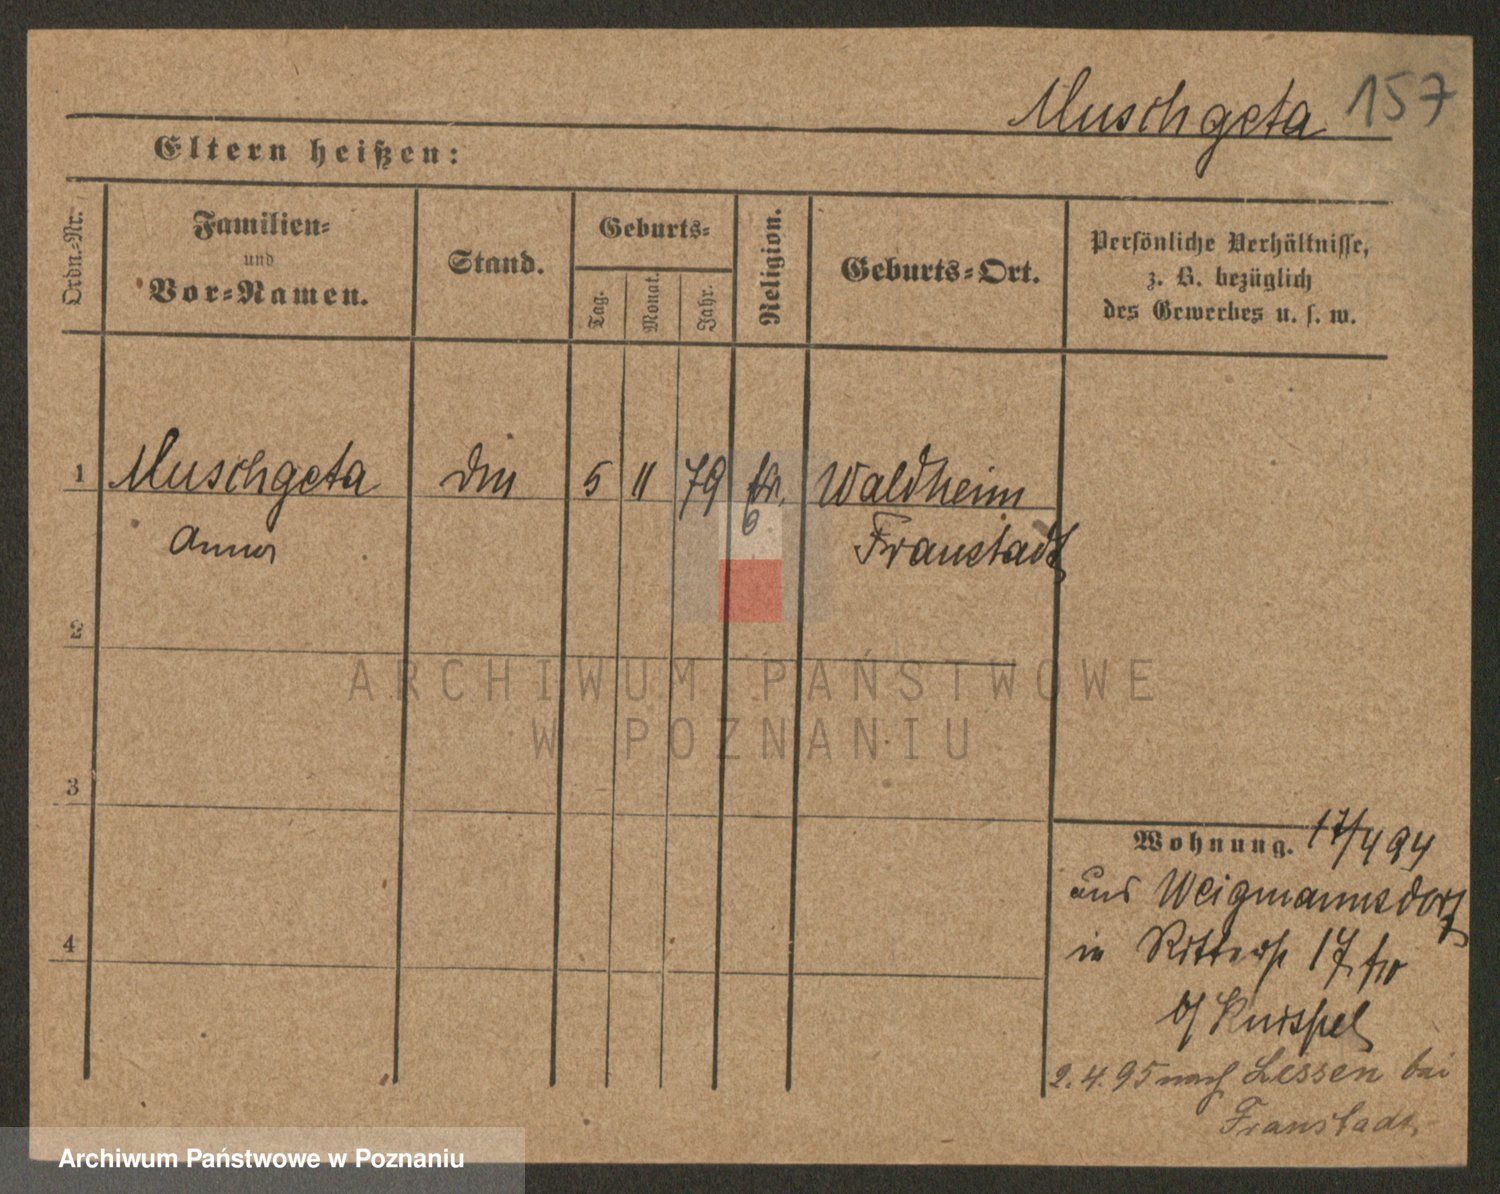 Muschgeta 157
Eltern heißen:
Ordn.-Nr.
Familien-
und
Vor-Namen.
Stand.
Geburts-
Tag.
Monat.
Jahr.
Religion.
Geburts-Ort.
Persönliche Verhältnisse,
z. B. bezüglich
des Gewerbes u. s. w.
1 Muschgeta 5 11 79 Waldheim
Anna Fraustadt
2
3
4
Wohnung. 17/4 94
aus Weigmannsdorf
in Ritterst 17
b/ Knispel
2.4.95 nach Lessen bei
Fraustadt
ARCHIWUM PAŃSTWOWE
W POZNANIU
Archiwum Państwowe w Poznaniu